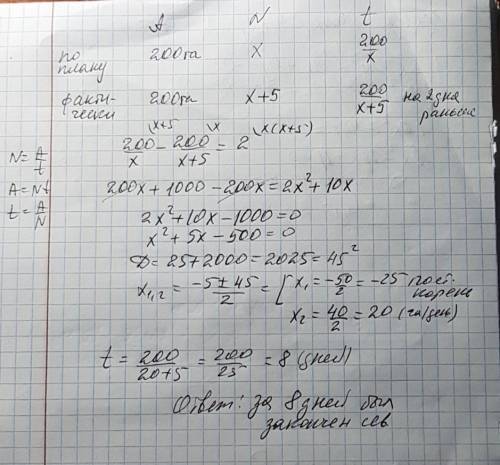 A N t
по плану 200га x 200/x
факти-чески 200га x+5 200/(x+5) на 2 дня раньше
N=A/t
A=Nt
t=A/N
200/x \x+5 − 200/(x+5) \x = 2 \x(x+5)
200x+1000−200x=2x²+10x
2x²+10x−1000=0
x²+5x−500=0
D=25+2000=2025=45²
x₁,₂=(−5±45)/2=[x₁=−50/2=−25 пост. корень
x₂=40/2=20 (га/день)
t=200/(20+5)=200/25=8 (дней)
Ответ: за 8 дней был
закончен сев